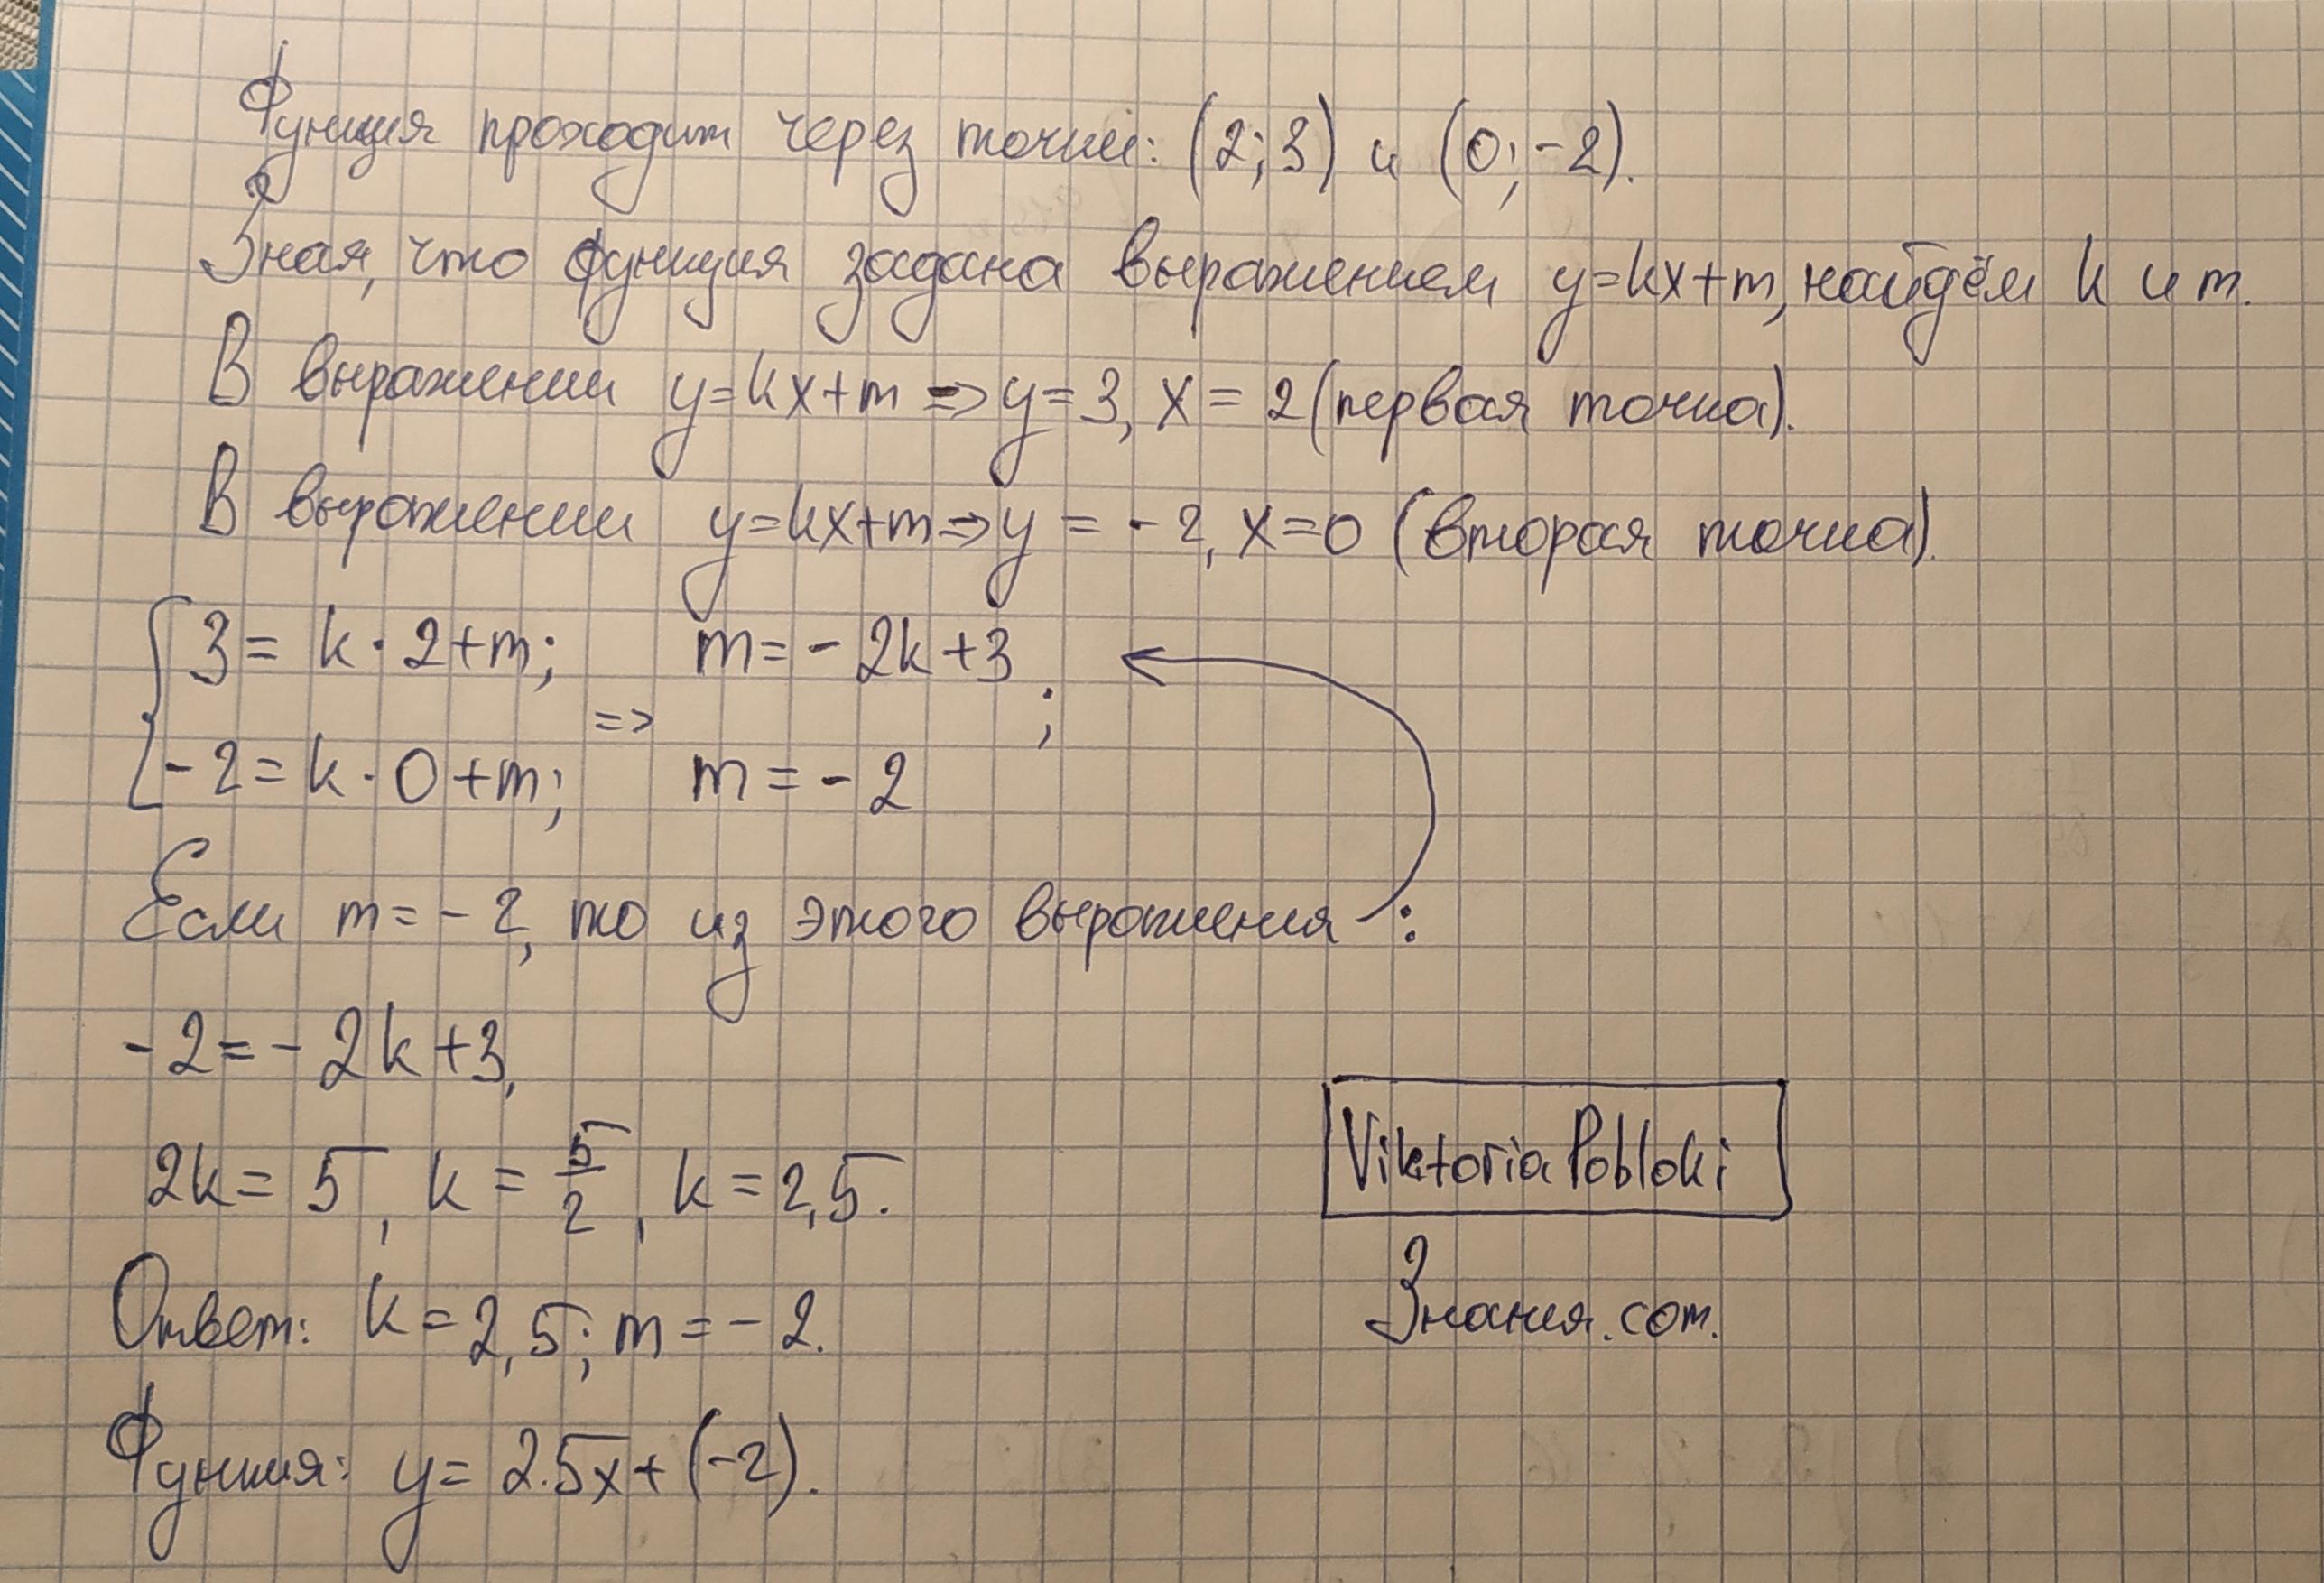 Функция проходит через точки: (2; 3) и (0; -2).
Зная, что функция задана выражением y=kx+m, найдём k и m.
В выражении y=kx+m => y=3, x=2 (первая точка).
В выражении y=kx+m => y = -2, x=0 (вторая точка).
3 = k · 2+m; m = -2k+3
=> ;
-2 = k · 0+m; m = -2
Если m = -2, то из этого выражения :
-2 = -2k+3,
2k = 5, k = 5/2, k = 2,5.
Viktoria Pobloki
Знания.com.
Ответ: k = 2,5; m = -2.
Функия: y = 2.5x + (-2).